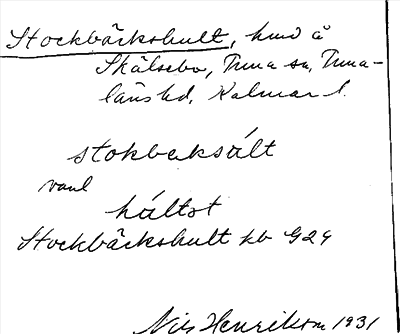 Stockbäckshult, hmd å
Skälsebo, Tuna sn, Tuna-
läns hd, Kalmar l.
stokbeksålt
vanl
håltət
Stockbäckshult kb G29
Nils Henrikson 1931